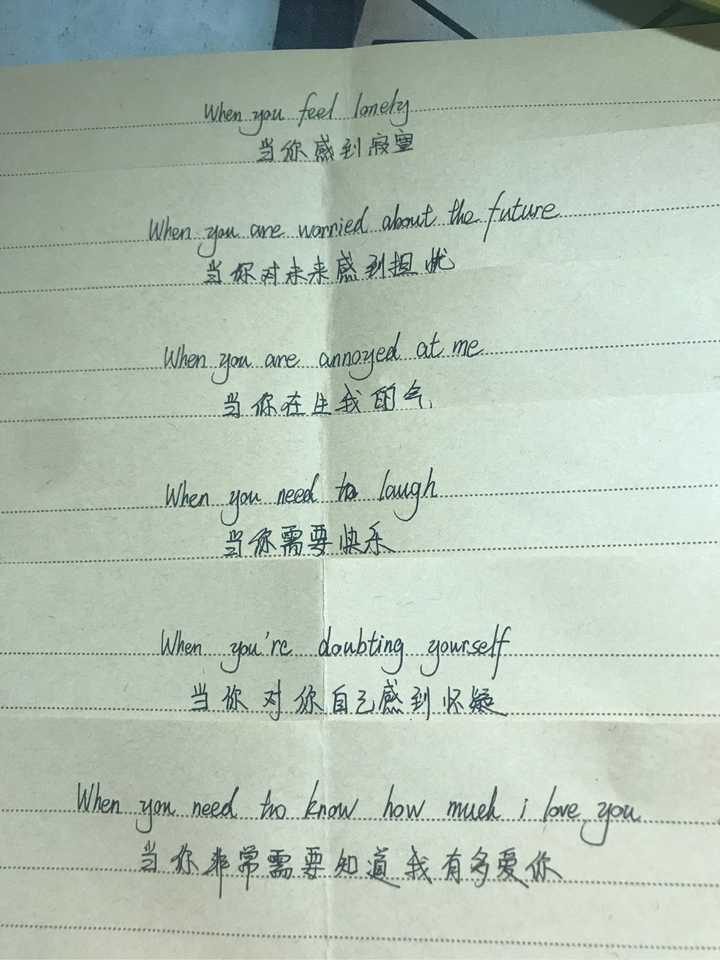 When you feel lonely
当你感到寂寞
When you are worried about the future
当你对未来感到担忧
When you are annoyed at me
当你在生我的气
When you need to laugh
当你需要快乐
When you're doubting yourself
当你对你自己感到怀疑
When you need to know how much i love you
当你非常需要知道我有多爱你